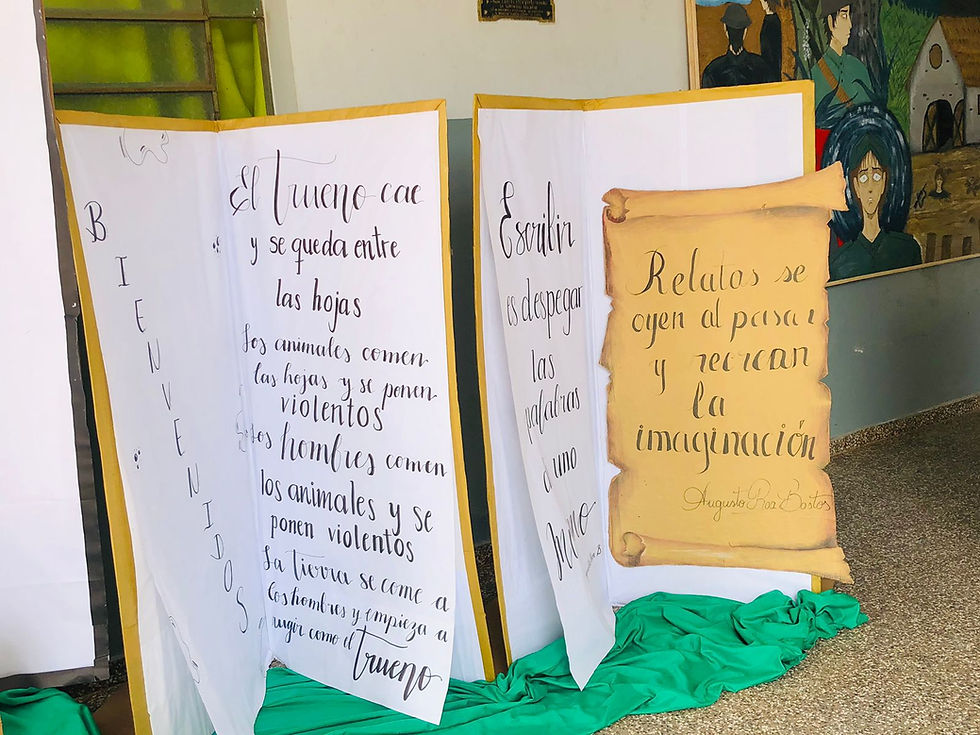 BIENVENIDOS
El trueno cae
y se queda entre
las hojas
Los animales comen
las hojas y se ponen
violentos
Los hombres comen
los animales y se
ponen violentos
La tierra se come a
los hombres y empieza a
rugir como el
trueno
Escribir
es despegar
las
palabras
d uno
Relatos se
oyen al pasar
y recrean
la
imaginación
Augusto Roa Bastos